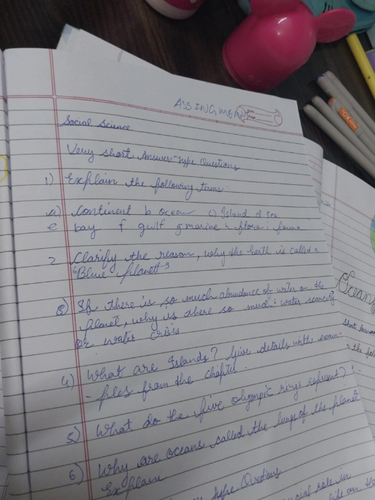 ASSINGMENT
Social Science
Very short Answer-type Questions
1) Explain the following terms.
a) Continent b ocean c) Island d sea
e bay f gulf g marine h flora i fauna
2 Clarify the reason, why the Earth is called a
"Blue Planet"
3) If there is so much abundance of water on the
planet, why is there so much water scarcity
or water crisis
4) What are Islands? Give details with exam-
-ples from the chapter.
5) What do the five olympic rings represent?
6) Why are oceans called the lungs of the planet
Explain
type Questions
social
Ocean